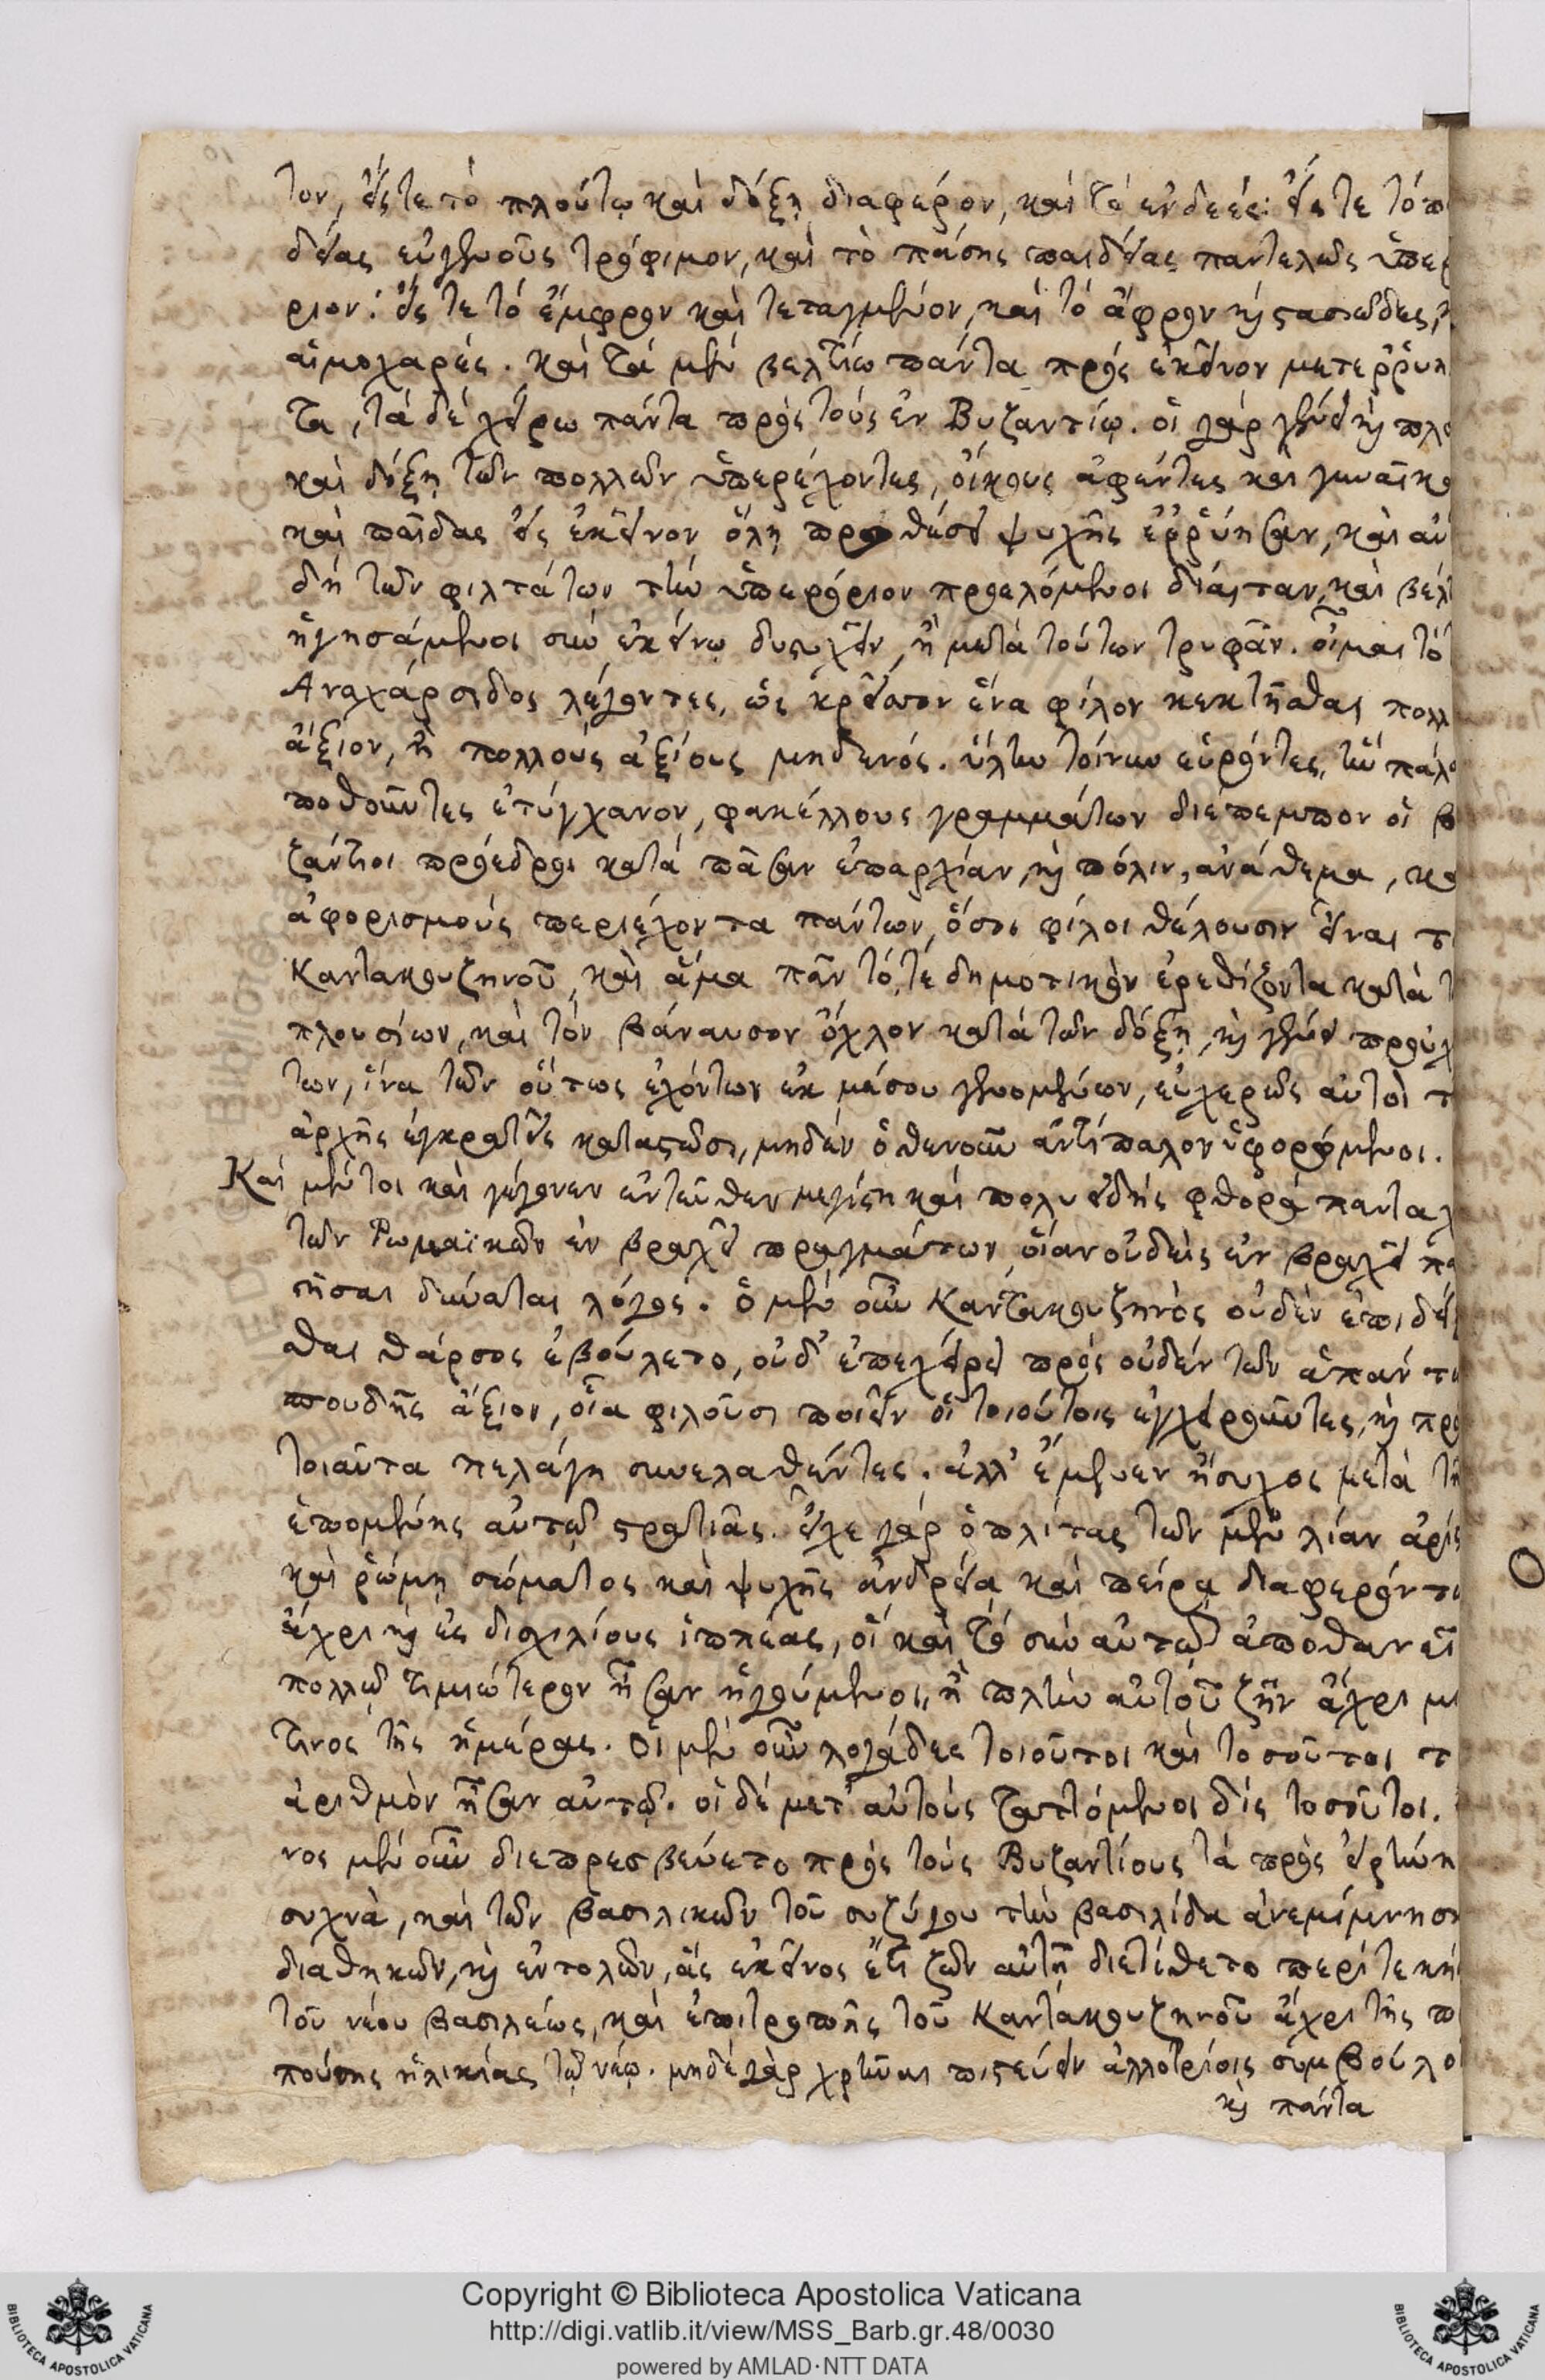 τον, εἴς τε τὸ πλούτῳ καὶ δόξῃ διαφέρον, καὶ τὸ ἐνδεές· εἴς τε τὸ π
δείας εὐγενοῦς τρόφιμον, καὶ τὸ πάσης παιδείας παντελῶς ὑπερ
ριον· εἴς τε τὸ ἔμφρον καὶ τεταγμένον, καὶ τὸ ἄφρον καὶ στασιῶδες,
αἱμοχαρές. καὶ τὰ μὲν βελτίω πάντα πρὸς ἐκεῖνον μετερρύη
τα, τὰ δὲ χείρω πάντα πρὸς τοὺς ἐν Βυζαντίῳ. οἱ γὰρ γένει καὶ πλο
καὶ δόξῃ τῶν πολλῶν ὑπερέχοντες, οἴκους ἀφέντες καὶ γυναῖκα
καὶ παῖδας εἰς ἐκεῖνον ὅλῃ προθέσει ψυχῆς ἐρρύησαν, καὶ ἀν
δὴ τῶν φιλτάτων τὴν ὑπερόριον προελόμενοι δίαιταν, καὶ βέλ
ἡγησάμενοι σὺν ἐκείνῳ δυστυχεῖν, ἢ μετὰ τούτων τρυφᾶν. οἶμαι τὸ
Ἀναχάρσιδος λέγοντες, ὡς κρεῖττον ἕνα φίλον κεκτῆσθαι πολλ
ἄξιον, ἢ πολλοὺς ἀξίους μηδενός. ὕλην τοίνυν εὑρόντες, ἣν πάλα
ποθοῦντες ἐτύγχανον, φακέλλους γραμμάτων διέπεμπον οἱ Β
ζάντιοι πρόεδροι κατὰ πᾶσαν ἐπαρχίαν, καὶ πόλιν, ἀνάθεμα, κα
ἀφορισμοὺς περιέχοντα πάντων, ὅσοι φίλοι θέλουσιν εἶναι τ
Καντακουζηνοῦ, καὶ ἅμα πᾶν τό, τε δημοτικὸν ἐρεθίζοντα κατὰ τ
πλουσίων, καὶ τὸν βάναυσον ὄχλον κατὰ τῶν δόξῃ, καὶ γένει προὐχ
των, ἵνα τῶν οὕτως ἐχόντων ἐκ μέσου γενομένων, εὐχερῶς αὐτοὶ τ
ἀρχῆς ἐγκρατεῖς καταστῶσι, μηδὲν ὁθενοῦν ἀντίπαλον ὑφορώμενοι.
Καὶ μέντοι καὶ γέγονεν ἐντεῦθεν μεγίστη καὶ πολυειδὴς φθορὰ πανταχ
τῶν Ῥωμαϊκῶν ἐν βραχεῖ πραγμάτων, οἵαν οὐδεὶς ἐν βραχεῖ πα
στῆσαι δύναται λόγος. ὁ μὲν οὖν Καντακουζηνὸς οὐδὲν ἐπιδεί
σθαι θάρσος ἐβούλετο, οὐδ' ἐπεχείρει πρὸς οὐδὲν τῶν ἁπάντω
σπουδῆς ἄξιον, οἷα φιλοῦσι ποιεῖν οἱ τοιούτοις ἐγχειροῦντες, καὶ προ
τοιαῦτα πελάγη συνελαθέντες. ἀλλ' ἔμενεν ἥσυχος μετὰ τῆ
ἑπομένης αὐτῷ στρατιᾶς. εἶχε γὰρ ὁπλίτας τῶν μὲν λίαν ἀρίσ
καὶ ῥώμῃ σώματος καὶ ψυχῆς ἀνδρείᾳ καὶ πείρᾳ διαφερόντω
ἄχρι καὶ ἐς δισχιλίους ἱππέας, οἳ καὶ τὸ σὺν αὐτῷ ἀποθανεῖ
πολλῷ τιμιώτερον ἦσαν ἡγούμενοι, ἢ πλὴν αὐτοῦ ζῆν ἄχρι μι
τινος τῆς ἡμέρας. οἱ μὲν οὖν λογάδες τοιοῦτοι καὶ τοσοῦτοι τ
ἀριθμὸν ἦσαν αὐτῷ. οἱ δὲ μετ' αὐτοὺς ταττόμενοι δὶς τοσοῦτοι.
νος μὲν οὖν διεπρεσβεύετο πρὸς τοὺς Βυζαντίους τὰ πρὸς εἰρήνη
συχνὰ, καὶ τῶν βασιλικῶν τοῦ συζύγου τὴν βασιλίδα ἀνεμίμνησκ
διαθηκῶν, καὶ ἐντολῶν, ἃς ἐκεῖνος ἔτι ζῶν αὐτῇ διετίθετο περί τε κη
τοῦ νέου βασιλέως, καὶ ἐπιτροπῆς τοῦ Καντακουζηνοῦ ἄχρι τῆς π
πούσης ἡλικίας τῷ νέῳ. μηδὲ γὰρ χρῆναι πιστεύειν ἀλλοτρίοις συμβούλο
καὶ πάντα
Copyright © Biblioteca Apostolica Vaticana
http://digi.vatlib.it/view/MSS_Barb.gr.48/0030
powered by AMLAD·NTT DATA
BIBLIOTECA APOSTOLICA VATICANA
BIBLIOTECA APOSTOLICA VATICANA